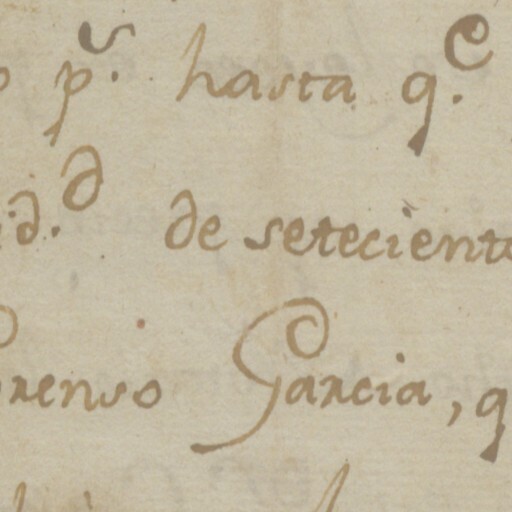 pr. hasta q.e
d.d de seteciento
orenso Garcia, q